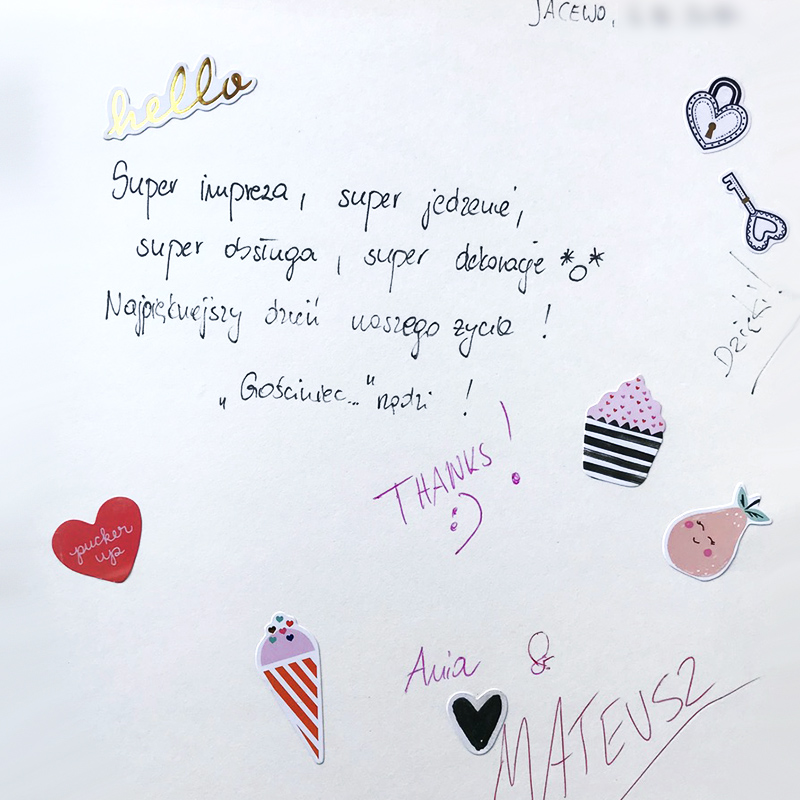 JACEWO,
hello
Super impreza, super jedzenie,
super obsługa, super dekoracje *o*
Najpiękniejszy dzień naszego życia !
Dzięki!
„Gościniec..." rządzi !
THANKS!
:)
pucker
up
Ania &
MATEUSZ